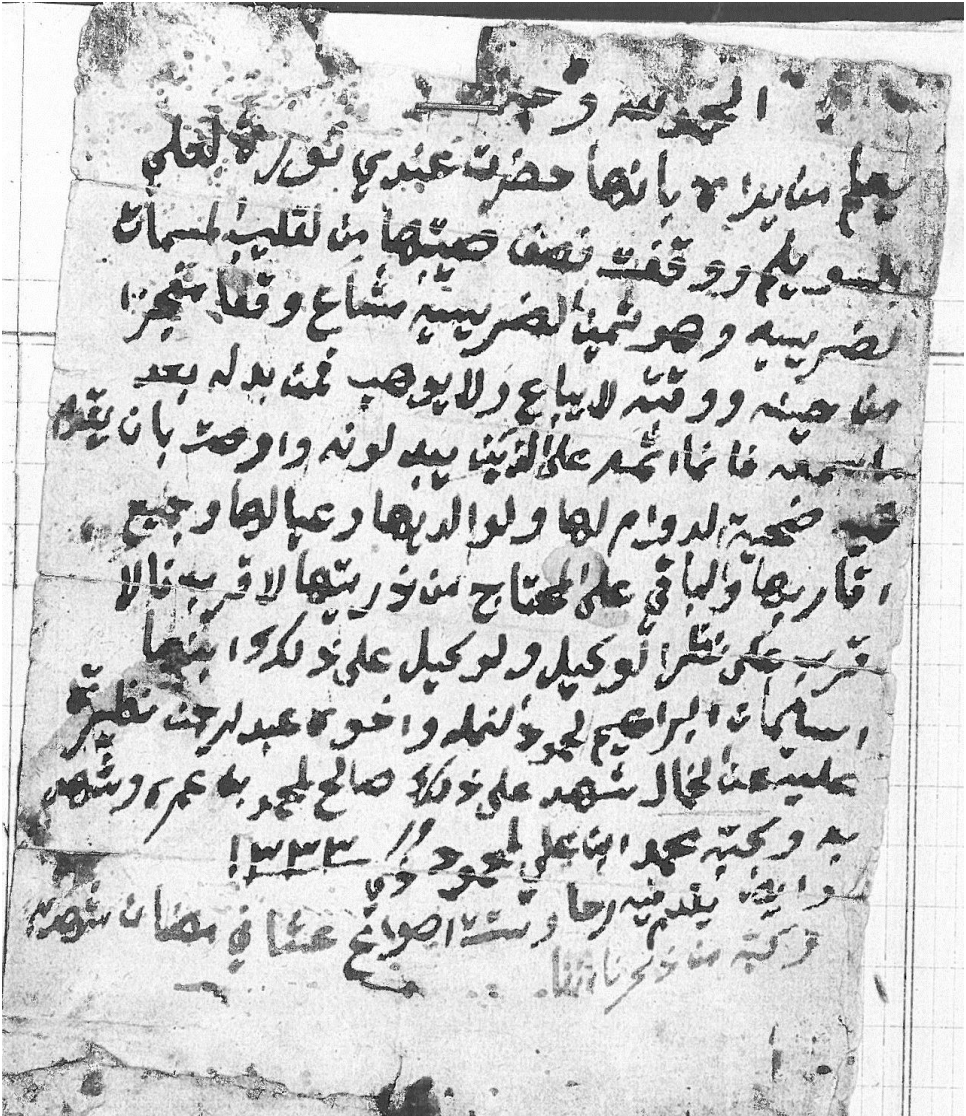 الحمد لله وحده
يعلم من يراه بانها حضرت عندي نوره لعلي
السويلم ووقفت نصف صيبتها من لقليب لمسمات
لضريسيه وهو ثمن لضريسيه مشاع وقفا منجزا
من حينه ووقته لا يباع ولا يوهب فمن بدله بعد
ما سمعه فانما اثمه على الذين يبدلونه واوصت بان يقدم
فيه ضحية لدوام لها ولوالديها وعيالها وجميع
اقاربها والباقي على المحتاج من ذريتها لاقرب فالا
قرب على نظر الوكيل ولوكيل على ذلك ابنها
اسليمان البراهيم لحمود لنمله واخوه عبدلرحمن نظيرة
عليه عن لخال شهد على ذلك صالح لمحمد به عمير وشهد
به وكتبه محمد ابن علي لحمود ١٣٣٣
وايضا يقدم فيه رحا وست اصواع عشا في رمضان شهد به
وكتبه من ذكرنا